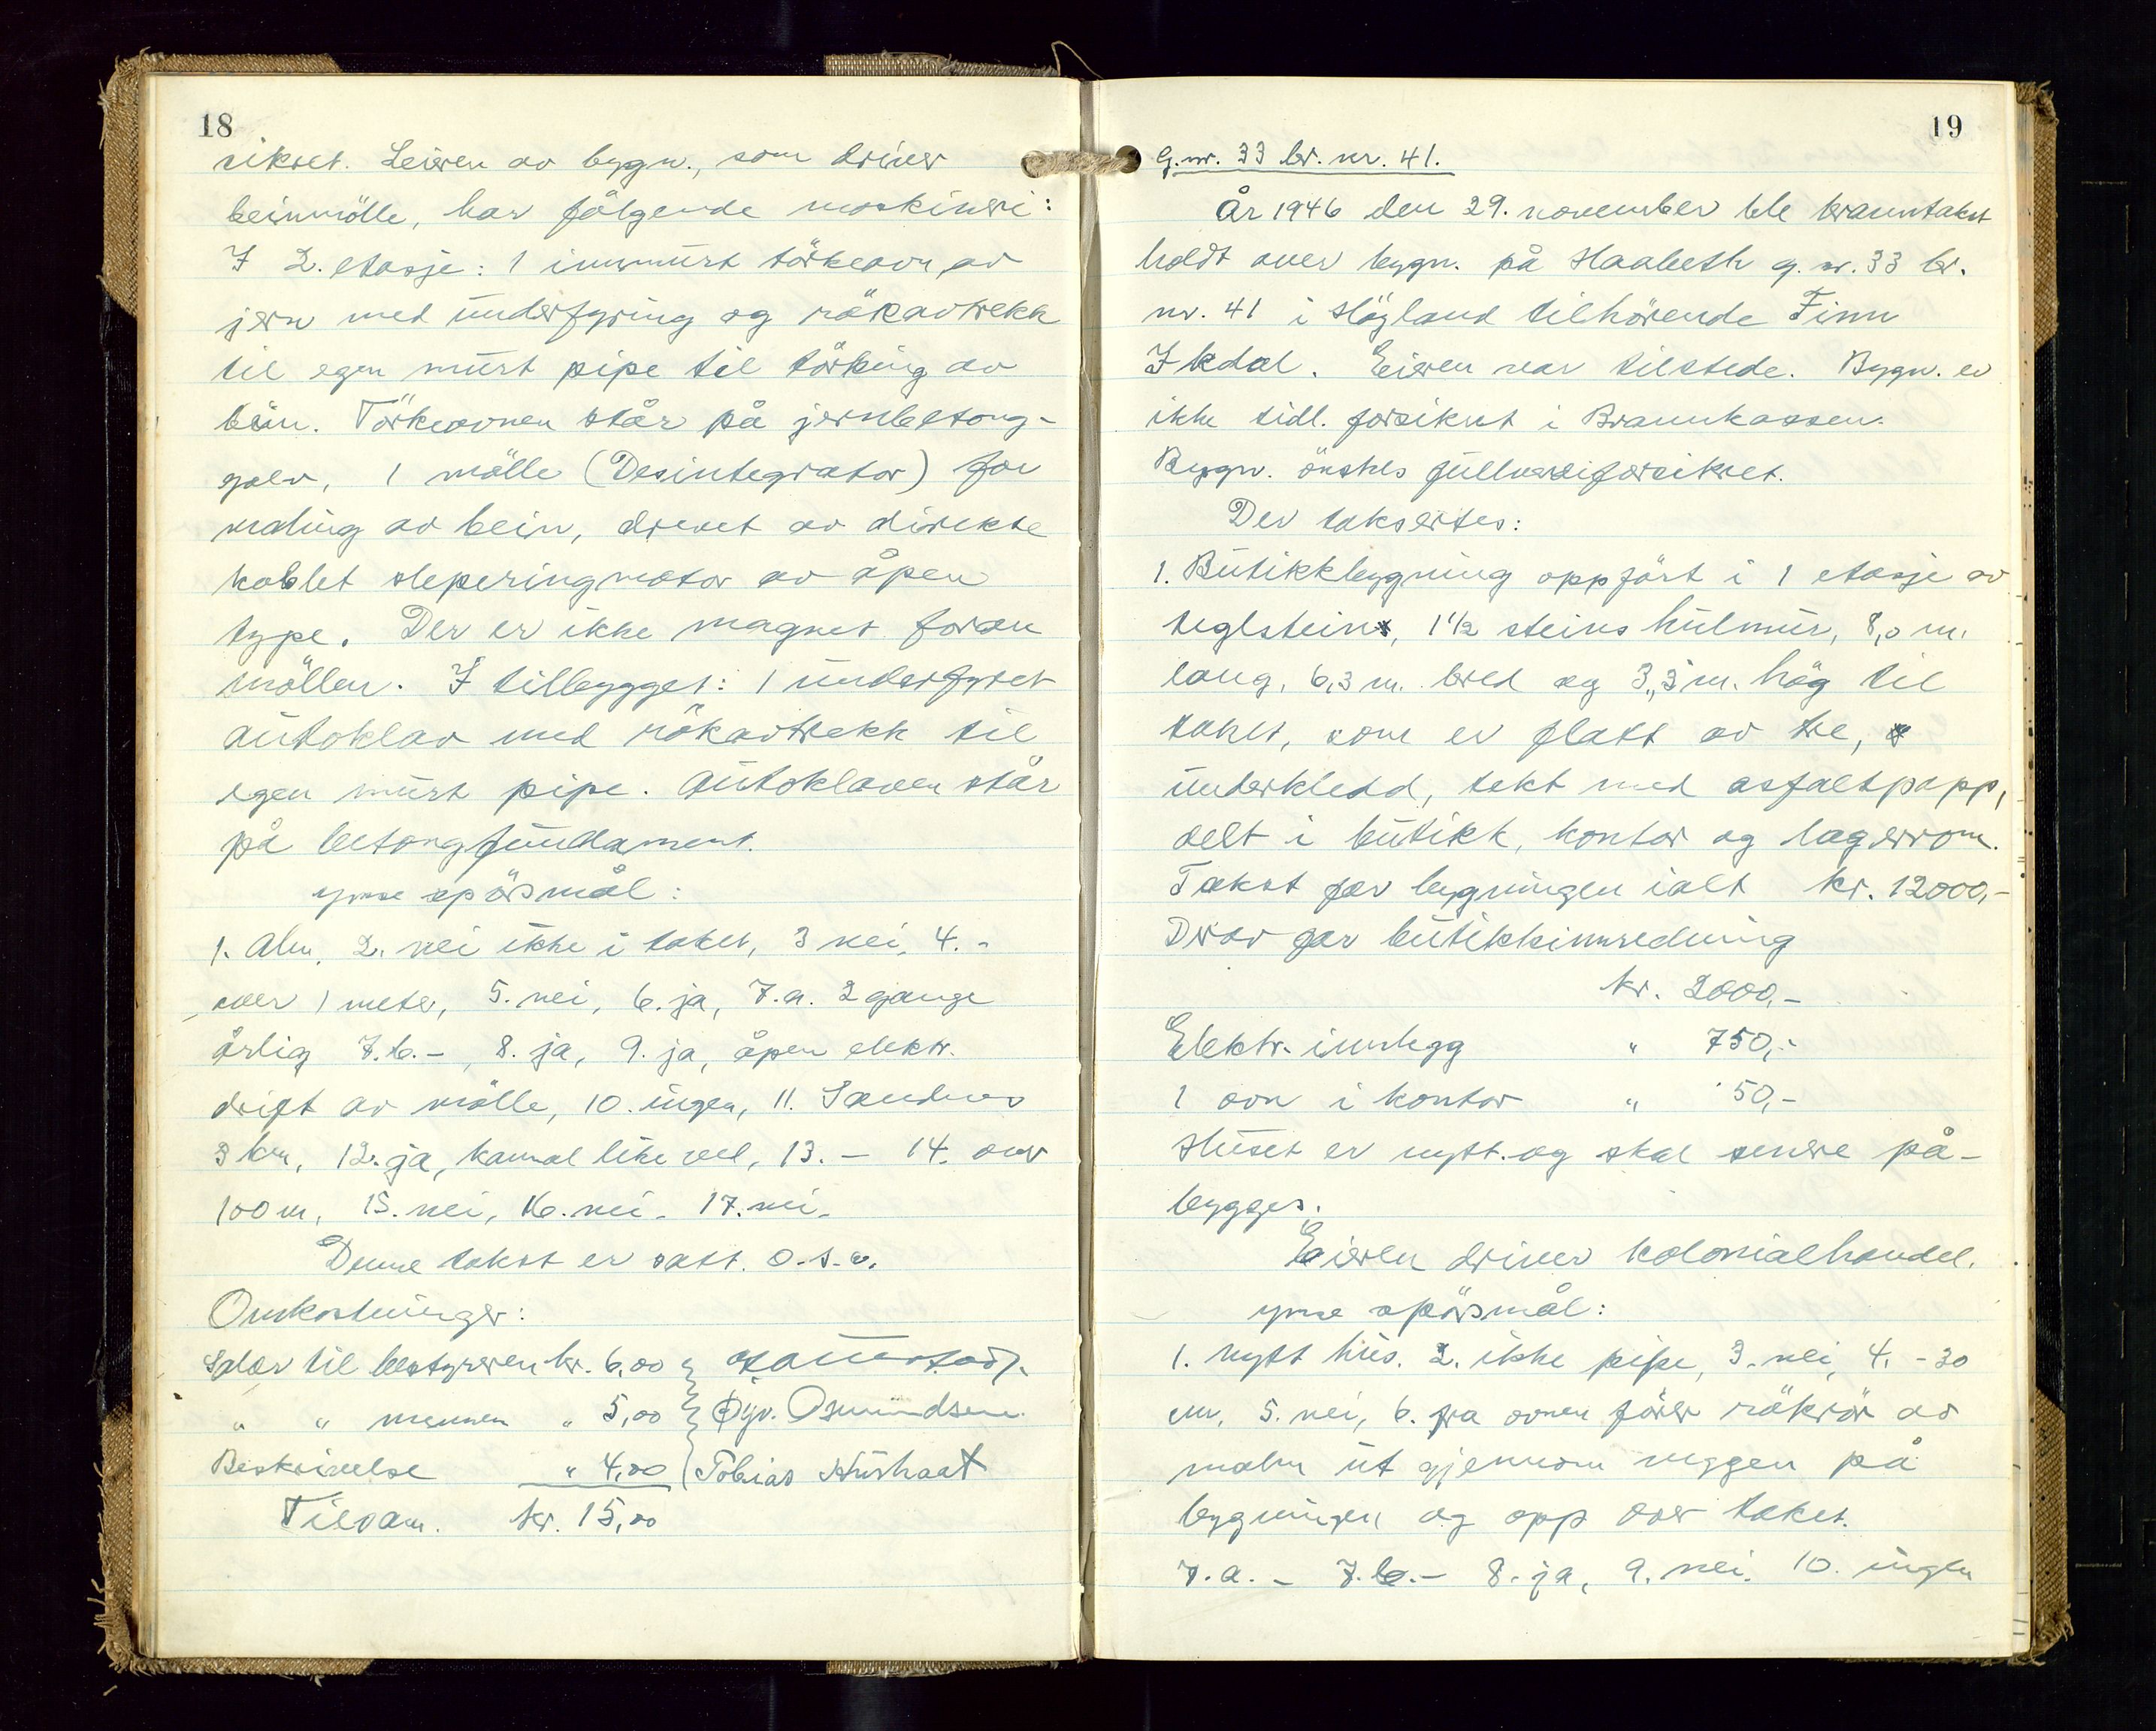 18
sikret. Leieren av bygn., som driver
beinmölle, har fölgende maskineri:
I 2. etasje: 1 innmurt törkeovn av
jern med underfyring og rökavtrekk
til egen murt pipe til törking av
bein. Törkeovnen står på jernbetong-
golv, 1 mölle (Desintegrator) for
maling av bein, drevet av direkte
koblet sleperingmotor av åpen
type. Der er ikke magnet foran
möllen. I tillbygget: 1 underfyret
autoklav med rökavtrekk til
egen murt pipe. Autoklaven står
på betongfundament.
ymse spörsmål:
1. Alm. 2. nei ikke i taket, 3 nei, 4. -
over 1 meter, 5. nei, 6. ja, 7.a. 2 gange
årlig 7.b. -, 8. ja, 9. ja, åpen elektr.
drift av mölle, 10. ingen, 11. Sandnes
3 km, 12. ja, kanal like ved, 13. - 14. over
100 m, 15. nei, 16. nei. 17. nei.
Denne takst er satt. o.s.v.
Omkostninger:
Salær til bestyreren kr. 6,00
" " mennen " 5,00 Øyv. Osmundsen
Beskrivelse " 4,00 Tobias Hushaat
Tilsam. kr. 15,00
19
G.nr. 33 br. nr. 41.
År 1946 den 29. november ble branntakst
holdt over bygn. på Haabeth g. nr. 33 br.
nr. 41 i Högland tilhörende Finn
Ikdal. Eieren var tilstede. Bygn. er
ikke tidl. forsikret i Brannkassen.
Bygn. önskes fullverdiforsikret.
Der taksertes:
1. Butikkbygning oppfört i 1 etasje av
teglstein, 1 1/2 steins hulmur, 8,0 m.
lang, 6,3 m. bred og 3,3 m. hög til
taket, som er flatt av tre,
underkledd, tekt med asfaltpapp,
delt i butikk, kontor og lagerrom.
Takst for bygningen ialt kr. 12000,-
Derav for butikkinnredning
kr. 2000,-
Elektr. innlegg " 750,-
1 ovn i kontor " 50,-
Huset er nytt og skal senere på-
bygges.
Eieren driver kolonialhandel.
ymse spörsmål:
1. nytt hus. 2. ikke pipe, 3. nei, 4. - 30
cm, 5. nei, 6. fra ovnen förer rökrör av
malm ut gjennom veggen på
bygningen og opp over taket.
7.a. - 7.b. - 8. ja, 9. nei. 10. ingen